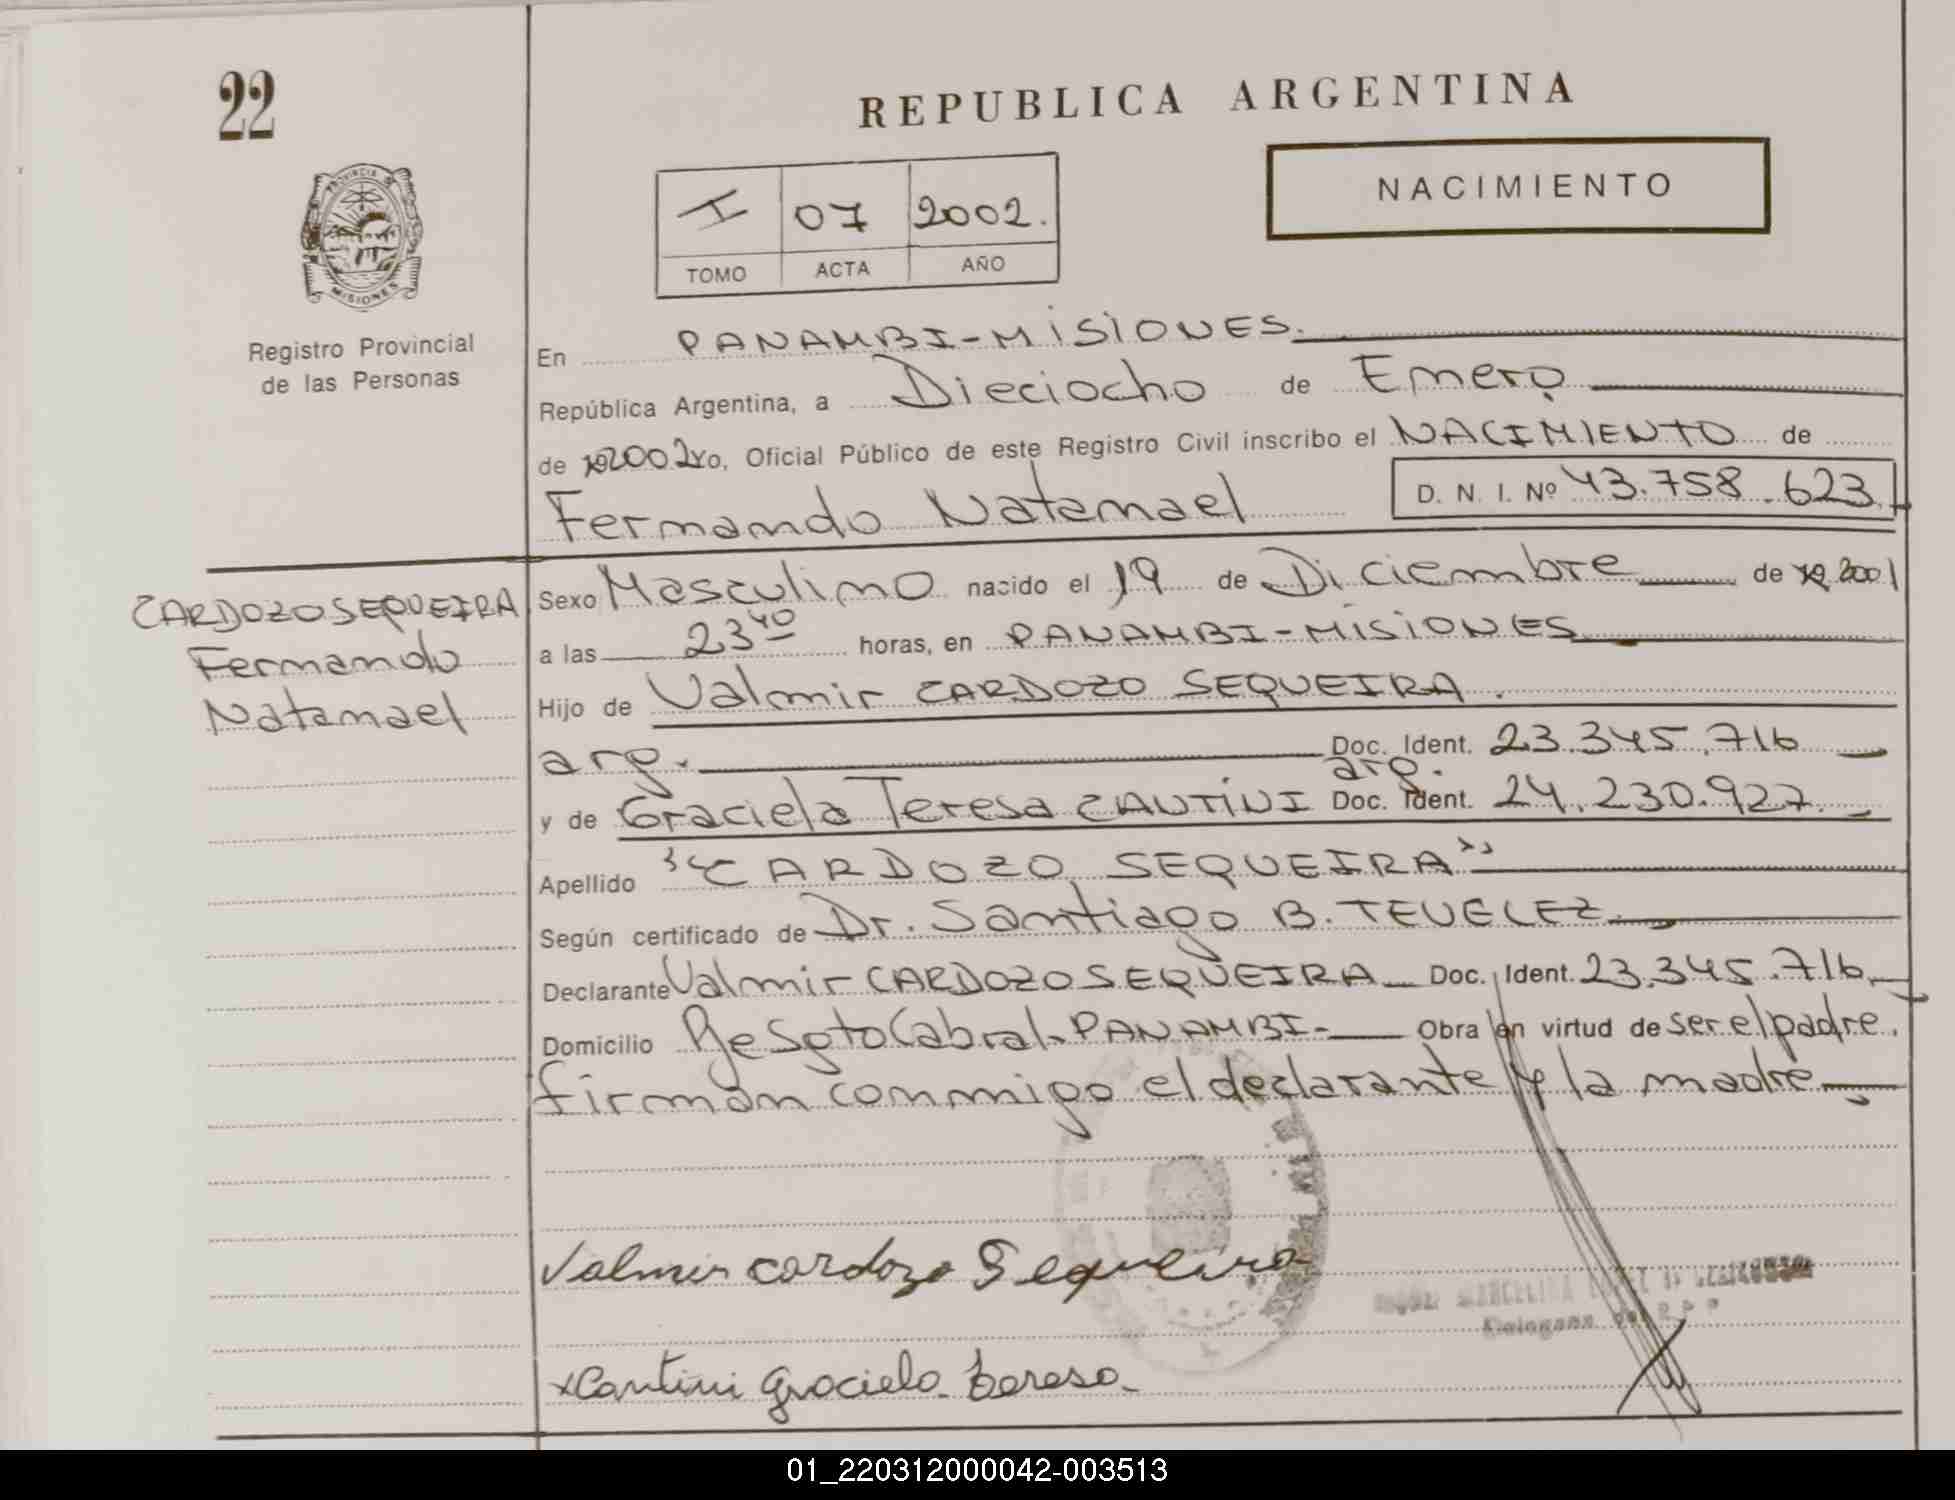 22
REPUBLICA ARGENTINA
NACIMIENTO
I 07 2002.
TOMO ACTA AÑO
PROVINCIA DE
MISIONES
Registro Provincial
de las Personas
En PANAMBI-MISIONES.
República Argentina, a Dieciocho de Enero
de 2002 yo, Oficial Público de este Registro Civil inscribo el NACIMIENTO de
Fernando Natanael D. N. I. Nº 43.758.623
CARDOZO SEQUEIRA
Fernando
Natanael
Sexo Masculino nacido el 19 de Diciembre de 2001
a las 23 40 horas, en PANAMBI-MISIONES
Hijo de Valmir CARDOZO SEQUEIRA.
arg. Doc. Ident. 23.345.716
arg.
y de Graciela Teresa CANTINI Doc. Ident. 24.230.927.
Apellido "CARDOZO SEQUEIRA"
Según certificado de Dr. Santiago B. TEVELEZ.
Declarante Valmir CARDOZO SEQUEIRA Doc. Ident. 23.345.716
Domicilio Sgto Cabral-PANAMBI- Obra en virtud de ser el padre.
firman conmigo el declarante y la madre
Valmir cardozo Sequeira
xCantini Graciela Teresa
01_220312000042-003513